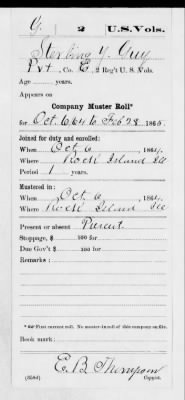 G. | 2 | U.S. Vols.
Sterling G. Guy
Pvt, Co. E, 2 Reg't U. S. Vols.
Age years.
Appears on
Company Muster Roll*
for Oct. 6, 64 to Feb 28, 1865.
Joined for duty and enrolled:
When Oct 6, 1864.
Where Rock Island Ill
Period 1 years.
Mustered in:
When Oct 6, 1864.
Where Rock Island Ill
Present or absent Present
Stoppage, $ 100 for
Due Gov't $ 100 for
Remarks:
Book mark:
E. B. Thompson
(358d) Copyist.